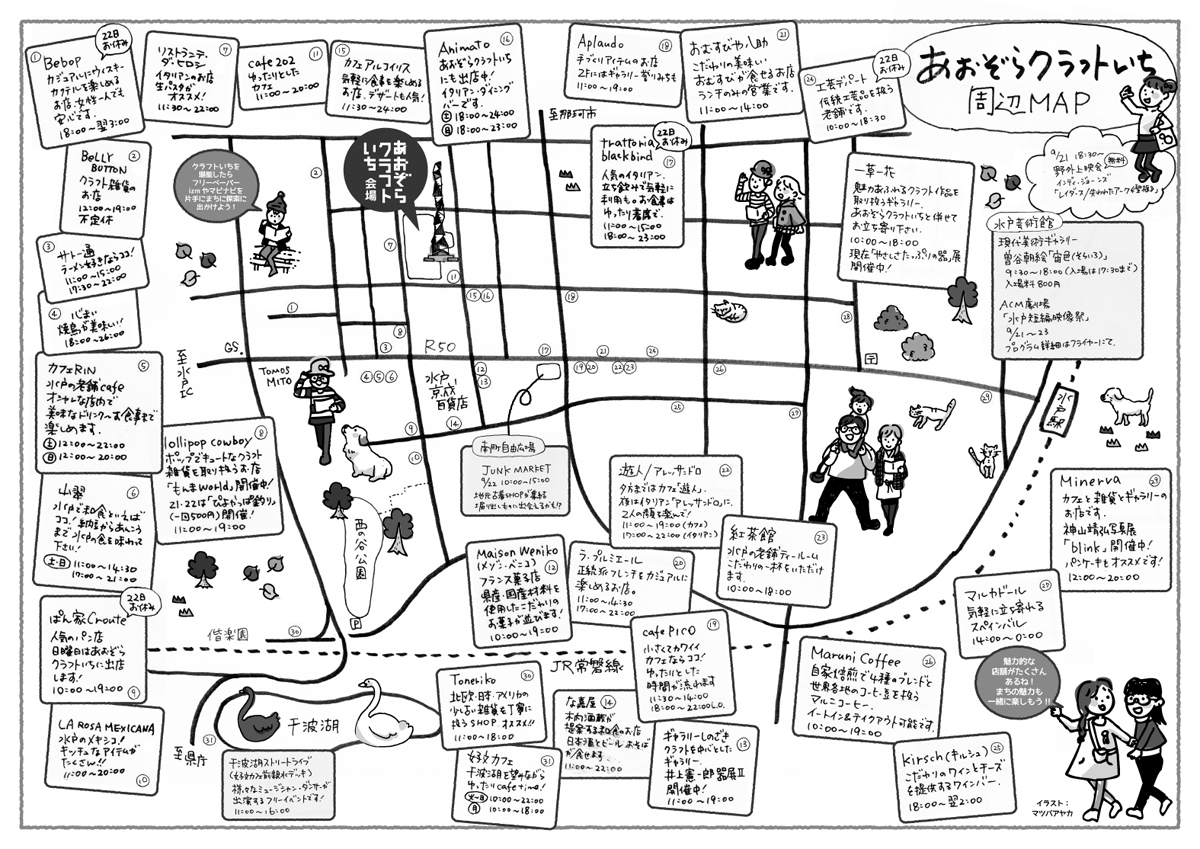 あおぞらクラフトいち
周辺MAP
9/21 18:30〜
野外上映会
無料
インディ・ジョーンズ
「レイダース/失われたアーク《聖櫃》」
①
22日
お休み
Bebop
カジュアルにウィスキー
カクテルを楽しめる
お店。女性一人でも
安心です。
18:00〜翌3:00
②
BELLY
BUTTON
クラフト雑貨の
お店
12:00〜19:00
不定休
③
サトー通
ラーメン好きならココ!
11:00〜15:00
17:30〜22:00
④
心まい
焼鳥が美味い!
18:00〜26:00
⑤
カフェRIN
水戸の老舗cafe
オシャレな店内で
美味なドリンク〜お食事まで
楽しめます。
土 12:00〜22:00
日 12:00〜20:00
⑥
山翠
水戸で和食といえば
ココ!納豆からあんこう
まで水戸の食を味わって
下さい!
土・日 11:00〜14:30
17:00〜21:00
⑦
リストランテ・
ダ・ヒロシ
イタリアンのお店
生パスタが
オススメ!
11:30〜22:00
⑧
lollipop cowboy
ポップでキュートなクラフト
雑貨を取り扱うお店
「もんまWorld」開催中!
21・22は「ぴよかっぱ釣り」
(一回500円)開催!
11:00〜19:00
22日
お休み
ぱん家Croute
人気のパン店
日曜日はあおぞら
クラフトいちに出店
します!
10:00〜19:00
⑨
LA ROSA MEXICANA
水戸のメキシコ!
キッチュなアイテムが
たくさん!!
11:00〜20:00
⑩
⑪
cafe 202
ゆったりとした
カフェ
11:00〜20:00
⑮
カフェアルコイリス
気軽に食事を楽しめる
お店。デザートも人気!
11:30〜24:00
⑯
Animato
あおぞらクラフトいち
にも出店中!
イタリアン・ダイニング
バーです。
土 18:00〜24:00
日 18:00〜23:00
⑱
Aplaudo
手づくりアイテムのお店
2Fにはギャラリー夢りみちも
11:00〜19:00
㉑
おむすびや八助
こだわりの美味しい
おむすびが食せるお店
ランチのみの営業です。
11:00〜14:00
㉔
22日
お休み
工芸デパート
伝統工芸品を扱う
老舗です。
10:00〜18:30
22日
お休み
trattoria
blackbird
⑰
人気のイタリアン。
立ち飲みで気軽に
利用も。お食事は
ゆったり着席で。
11:00〜15:00
18:00〜23:00
一草一花
魅力あふれるクラフト作品を
取り扱うギャラリー。
あおぞらクラフトいちと併せて
お立ち寄り下さい。
10:00〜18:00
現在「やさしさたっぷりの器」展
開催中!
水戸芸術館
現代美術ギャラリー
曽谷朝絵「宙色(そらいろ)」
9:30〜18:00(入場は17:30まで)
入場料800円
ACM劇場
「水戸短編映像祭」
9/21〜23
プログラム詳細はフライヤーにて。
クラフトいちを
堪能したら
フリーペーパー
izmやマピナビを
片手にまちに探索に
出かけよう!
あおぞら
クラフト
いち
会場
至那珂市
②
⑦
⑪
①
⑮⑯
⑱
㉘
⑧
③
R50
GS.
至水戸IC
TOMOS
MITO
④⑤⑥
水戸
京成
百貨店
⑫
⑬
⑰
⑲⑳
㉑
㉒㉓
㉔
㉖
〒
㉙
水戸駅
⑨
⑭
⑩
㉕
㉗
南町自由広場
JUNK MARKET
9/22 10:00〜15:00
地元古着SHOPが集結
掘り出しものに出会えるかも!?
西の谷公園
P
偕楽園
㉚
JR常磐線
千波湖
㉛
至県庁
千波湖ストリートライブ
(好文カフェ前親水デッキ)
様々なミュージシャン・ダンサーが
出演するフリーイベントです!
11:00〜16:00
Maison Weniko
(メゾン・ベニコ)
⑫
フランス菓子店
県産・国産材料を
使用したこだわりの
お菓子が並びます!
10:00〜19:00
ラ・プルミエール
⑳
正統派フレンチをカジュアルに
楽しめるお店。
11:00〜14:30
17:00〜22:00
遊人/アレッサンドロ
㉒
夕方まではカフェ「遊人」、
夜はイタリアン「アレッサンドロ」に。
2つの顔を楽しんで!
11:00〜19:00(カフェ)
17:00〜22:00(イタリアン)
紅茶館
㉓
水戸の老舗ティールーム
こだわりの一杯をいただけ
ます。
10:00〜18:00
cafe PICO
⑲
小さくてカワイイ
カフェならココ!
ゆったりとした
時間が流れます
11:30〜14:00
18:00〜22:00L.O.
Toneriko
㉚
北欧・日本・アメリカの
少し古い雑貨を丁寧に
扱うSHOP オススメ!!
11:00〜18:00
な嘉屋
⑭
木内酒蔵が
提案する和食のお店
日本酒とビール、おそば
が食せます。
11:00〜22:00
好文カフェ
㉛
千波湖を望みながら
ゆったりcafe time!
火〜日 10:00〜22:00
月 10:00〜18:00
ギャラリーしのざき
⑬
クラフトを中心とした
ギャラリー
井上憲一郎器展II
開催中!
11:00〜19:00
Maruni Coffee
㉖
自家焙煎で4種のブレンドと
世界各地のコーヒー豆を扱う
マルニコーヒー。
イートイン&テイクアウト可能です。
10:00〜19:00
マルカドール
㉗
気軽に立ち寄れる
スペインバル
14:00〜0:00
Minerva
カフェと雑貨とギャラリーの
お店です。
神山靖弘写真展
「blink」開催中!
パンケーキもオススメです!
12:00〜20:00
Kirsch(キルシュ)
㉕
こだわりのワインとチーズ
を提供するワインバー。
18:00〜翌2:00
魅力的な
店舗がたくさん
あるね!
まちの魅力も
一緒に楽しもう!!
イラスト:
マツバアヤカ